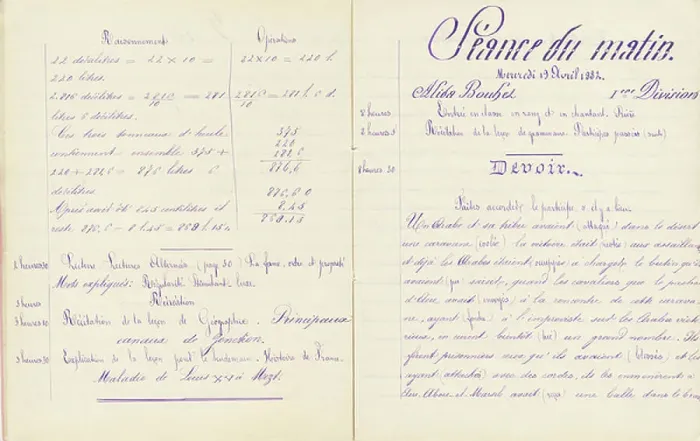 Raisonnement
Opérations
22 décalitres = 22 × 10 =
220 litres.
22 × 10 = 220 l.
2.816 décilitres = 2816/10 = 281
litres 6 décilitres.
2816/10 = 281 l. 6 d.
Ces trois tonneaux d'huile
contiennent ensemble 375 +
220 + 281,6 = 876 litres 6
décilitres.
375
220
281,6
876,6
Après avoir ôté 845 centilitres il
reste 876,6 - 8 l 45 = 868 l 15
876,60
8,45
868,15
Lecture. Lectures (page 50) La ordre et propreté
Mots expliqués: Régularité luxe.
3 heures
Récréation
3 heures 10
Récitation de la leçon de Géographie. Principaux
canaux de jonction.
3 heures 30
Explication de la leçon pour le lendemain. Histoire de France.
Maladie de Louis XV à Metz.
Séance du matin.
Mercredi 19 Avril 1882.
Alida Bouhél
1ère Division
8 heures
Entrée en classe en rang et en chantant. Prière
Récitation de la leçon de grammaire. Participes passés (suite)
8 heures 30
Devoir.
Faites accorder le participe s'il y a lieu.
Un Arabe et sa tribu avaient dans le désert
une caravane la victoire était aux assaillants
et déjà les Arabes étaient à charger le butin qu'ils
avaient fait, quand les cavaliers que le pacha
d'Acre avait à la rencontre de cette carava
ne, ayant à l'improviste sur les Arabes victo
rieux, en eurent bientôt (tué) un grand nombre. Ils
firent prisonniers ceux qu'ils avaient et les
ayant (attachés) avec des cordes, ils les emmenèrent à
Acre. Abou-el-Marsch avait (reçu) une balle dans le bras